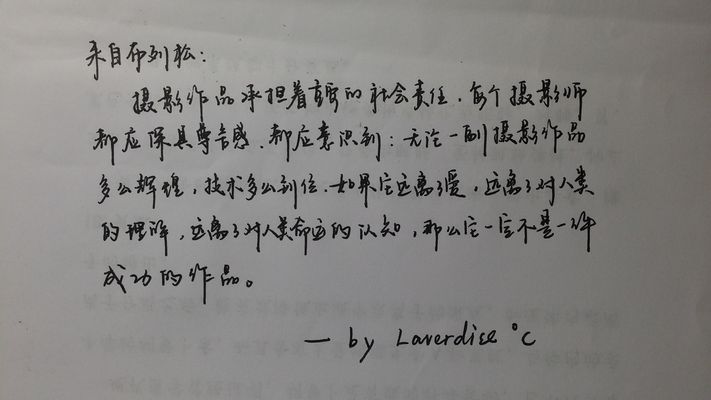 来自布列松：
摄影作品承担着重要的社会责任．每个摄影师
都应深具尊告感、都应意识到：无论一副摄影作品
多么辉煌，技术多么到位．如果它远离了爱，远离了对人类
的理解，远离了对人类命运的认知，那么它一定不是一件
成功的作品。
— by Laverdise °C